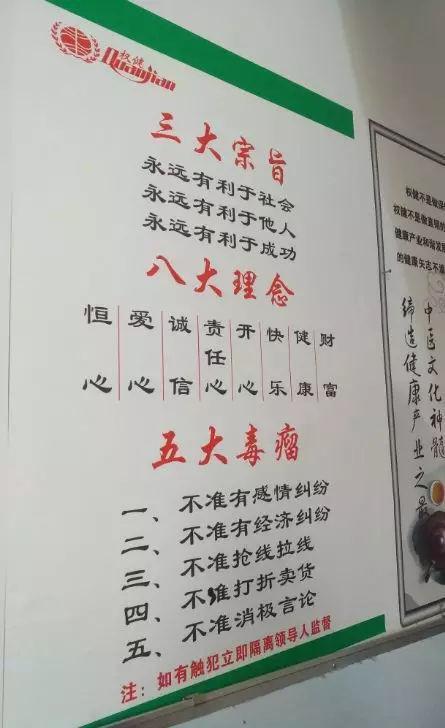 权健
Quanjian
三大宗旨
永远有利于社会
永远有利于他人
永远有利于成功
八大理念
恒心 爱心 诚信 责任心 开心 快乐 健康 财富
五大毒瘤
一、不准有感情纠纷
二、不准有经济纠纷
三、不准抢线拉线
四、不准打折卖货
五、不准消极言论
注：如有触犯立即隔离领导人监督
权健不是做保
权健不是做直销的
健康产业和谐发展
的健康矢志不
中医文化神髓
缔造健康产业之最